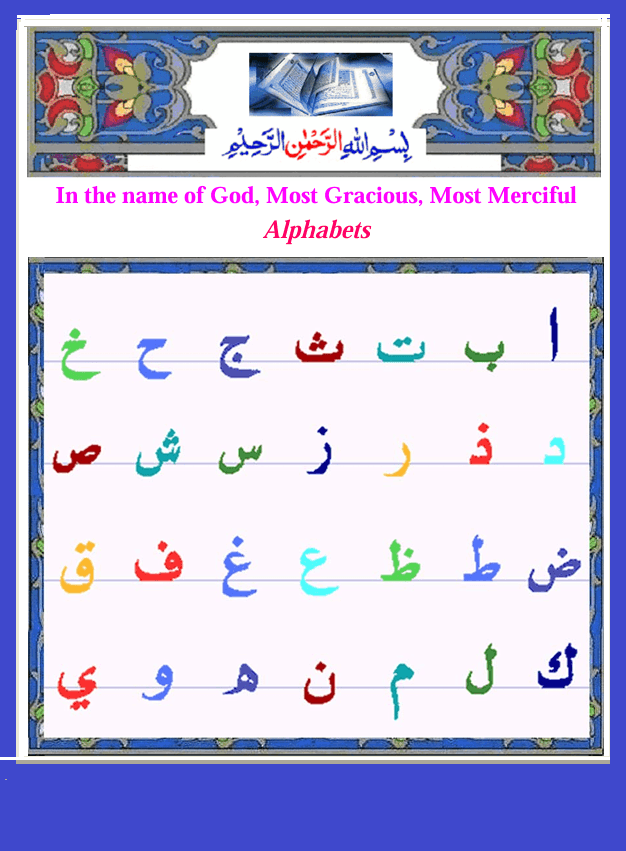 بِسْمِ اللهِ الرَّحْمٰنِ الرَّحِيْمِ
In the name of God, Most Gracious, Most Merciful
Alphabets
ا ب ت ث ج ح خ
د ذ ر ز س ش ص
ض ط ظ ع غ ف ق
ك ل م ن ه و ي